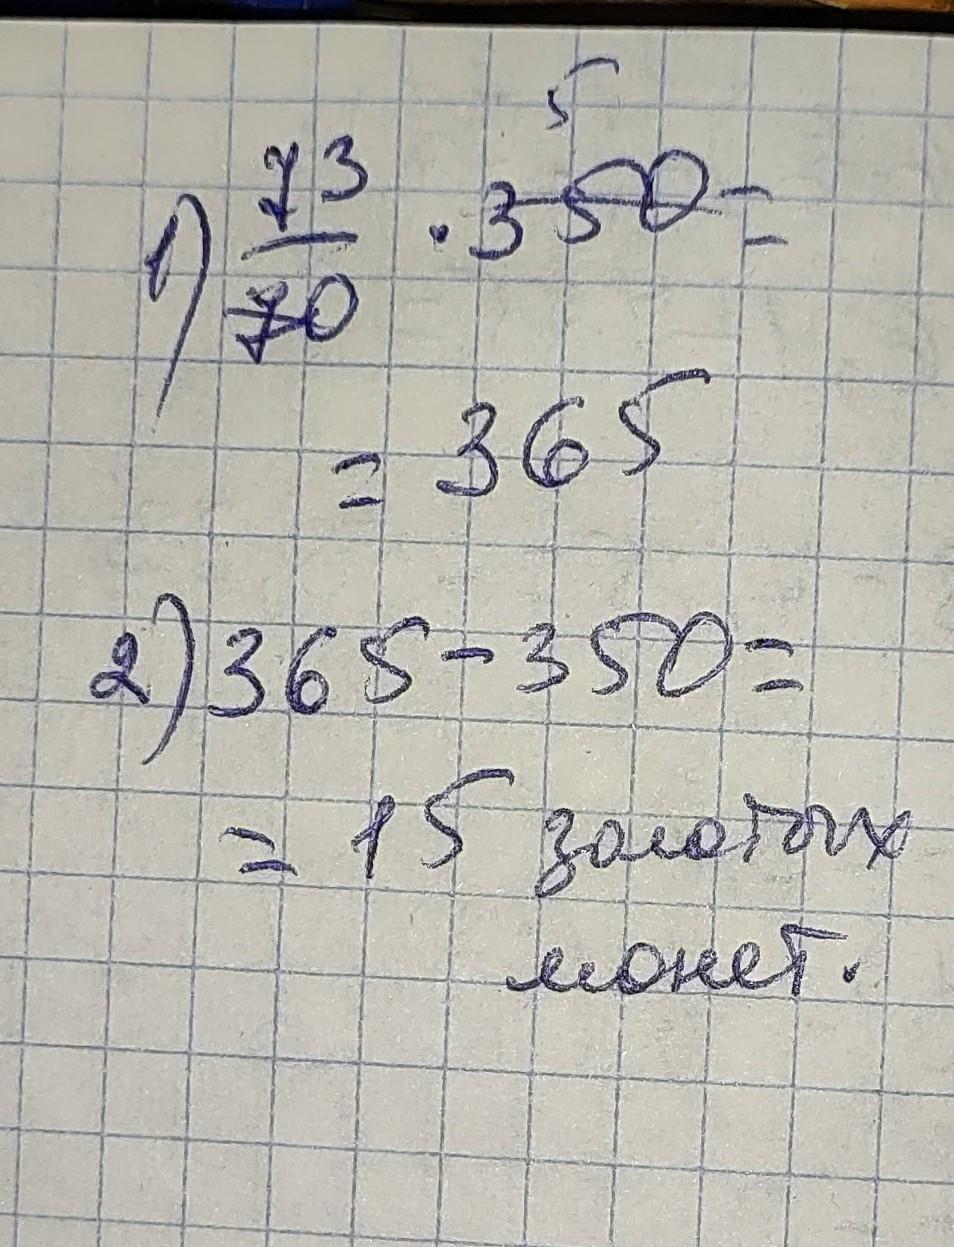 5
1) 73/70 · 350 =
= 365
2) 365 - 350 =
= 15 золотых
монет.